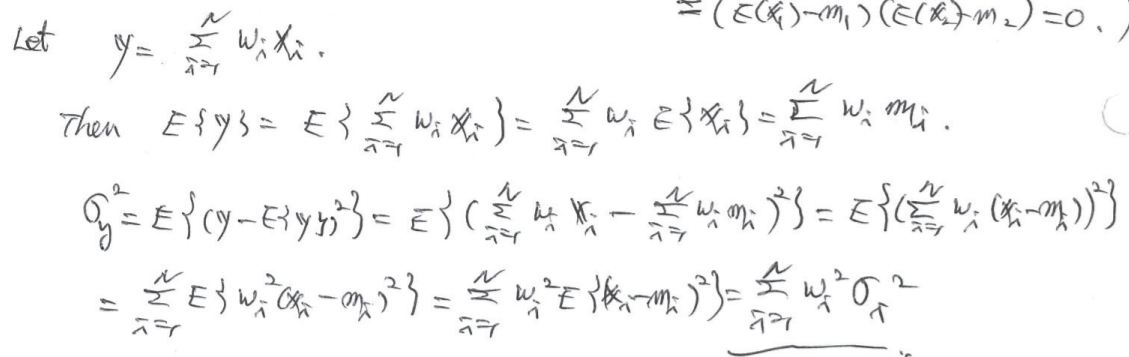 = (E(x₁)-m₁)(E(x₂)-m₂) = 0. )
Let y = Σ_{i=1}^{N} wᵢ xᵢ.
Then E{y} = E{ Σ_{i=1}^{N} wᵢ xᵢ } = Σ_{i=1}^{N} wᵢ E{xᵢ} = Σ_{i=1}^{N} wᵢ mᵢ.
σ_y² = E{(y-E{y})²} = E{( Σ_{i=1}^{N} wᵢ xᵢ - Σ_{i=1}^{N} wᵢ mᵢ )²} = E{(Σ_{i=1}^{N} wᵢ (xᵢ-mᵢ))²}
= Σ_{i=1}^{N} E{ wᵢ² (xᵢ-mᵢ)² } = Σ_{i=1}^{N} wᵢ² E{(xᵢ-mᵢ)²} = Σ_{i=1}^{N} wᵢ² σᵢ²